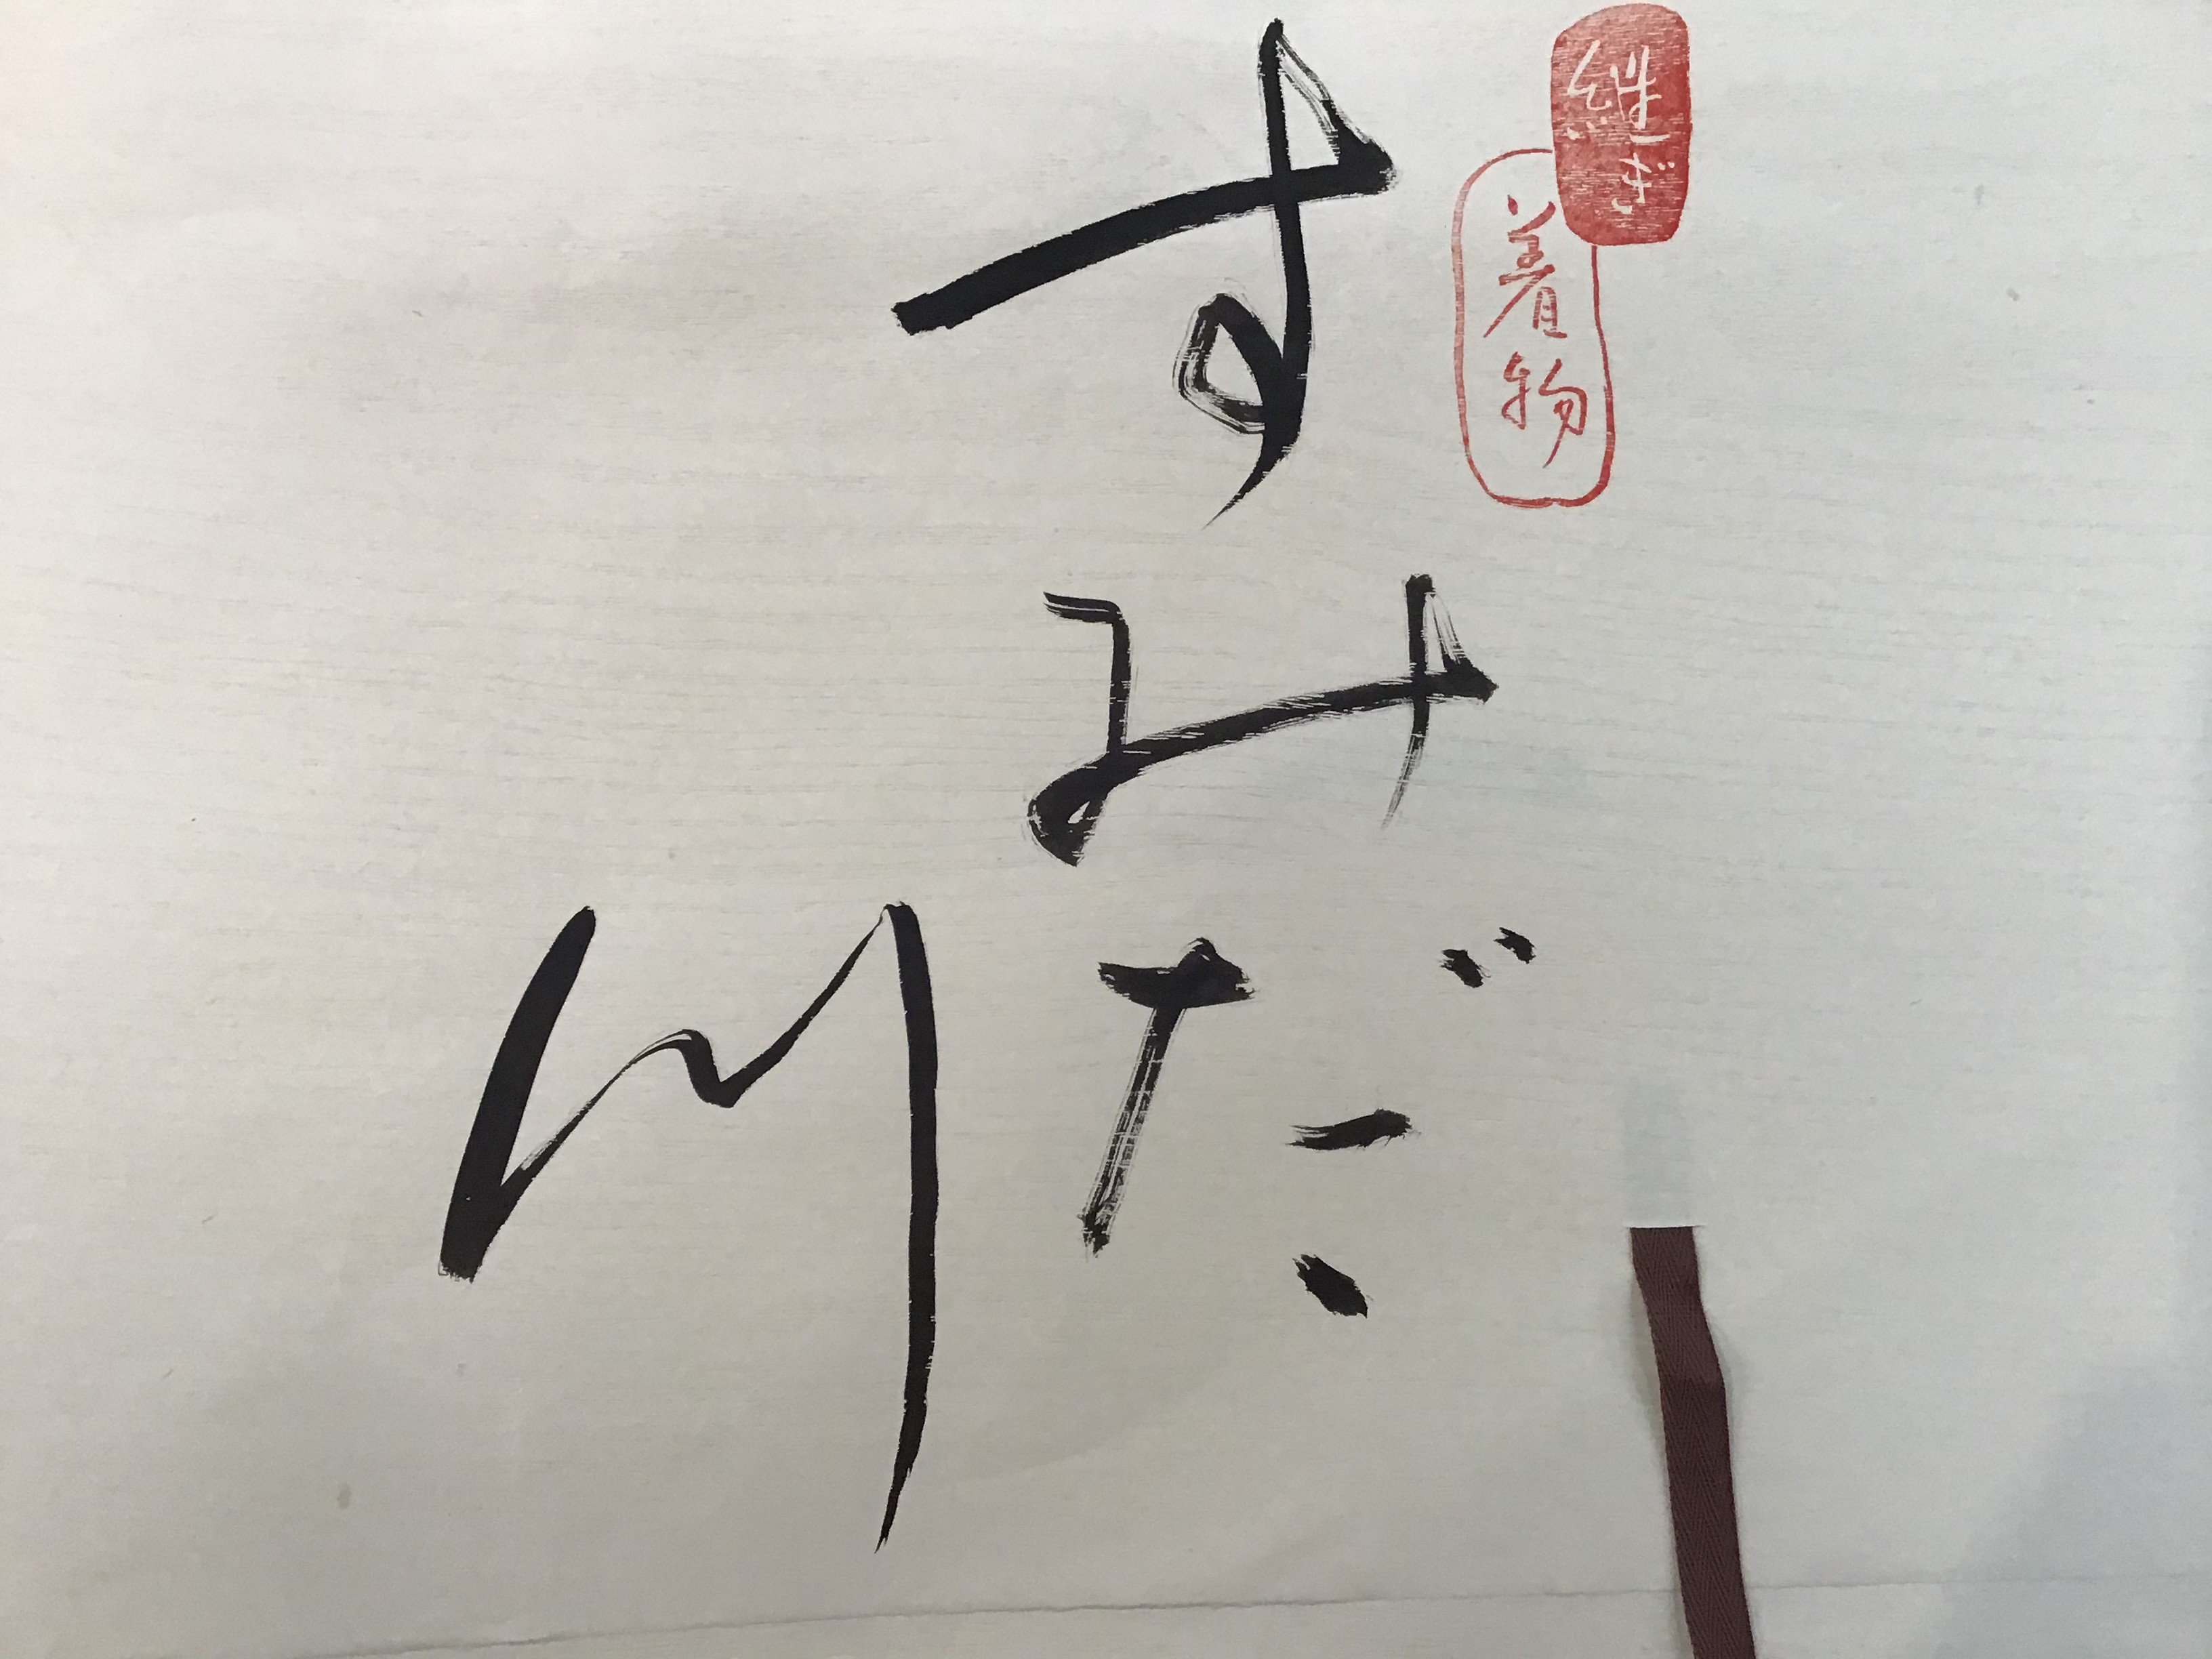 継ぎ
着物
すみだ
川